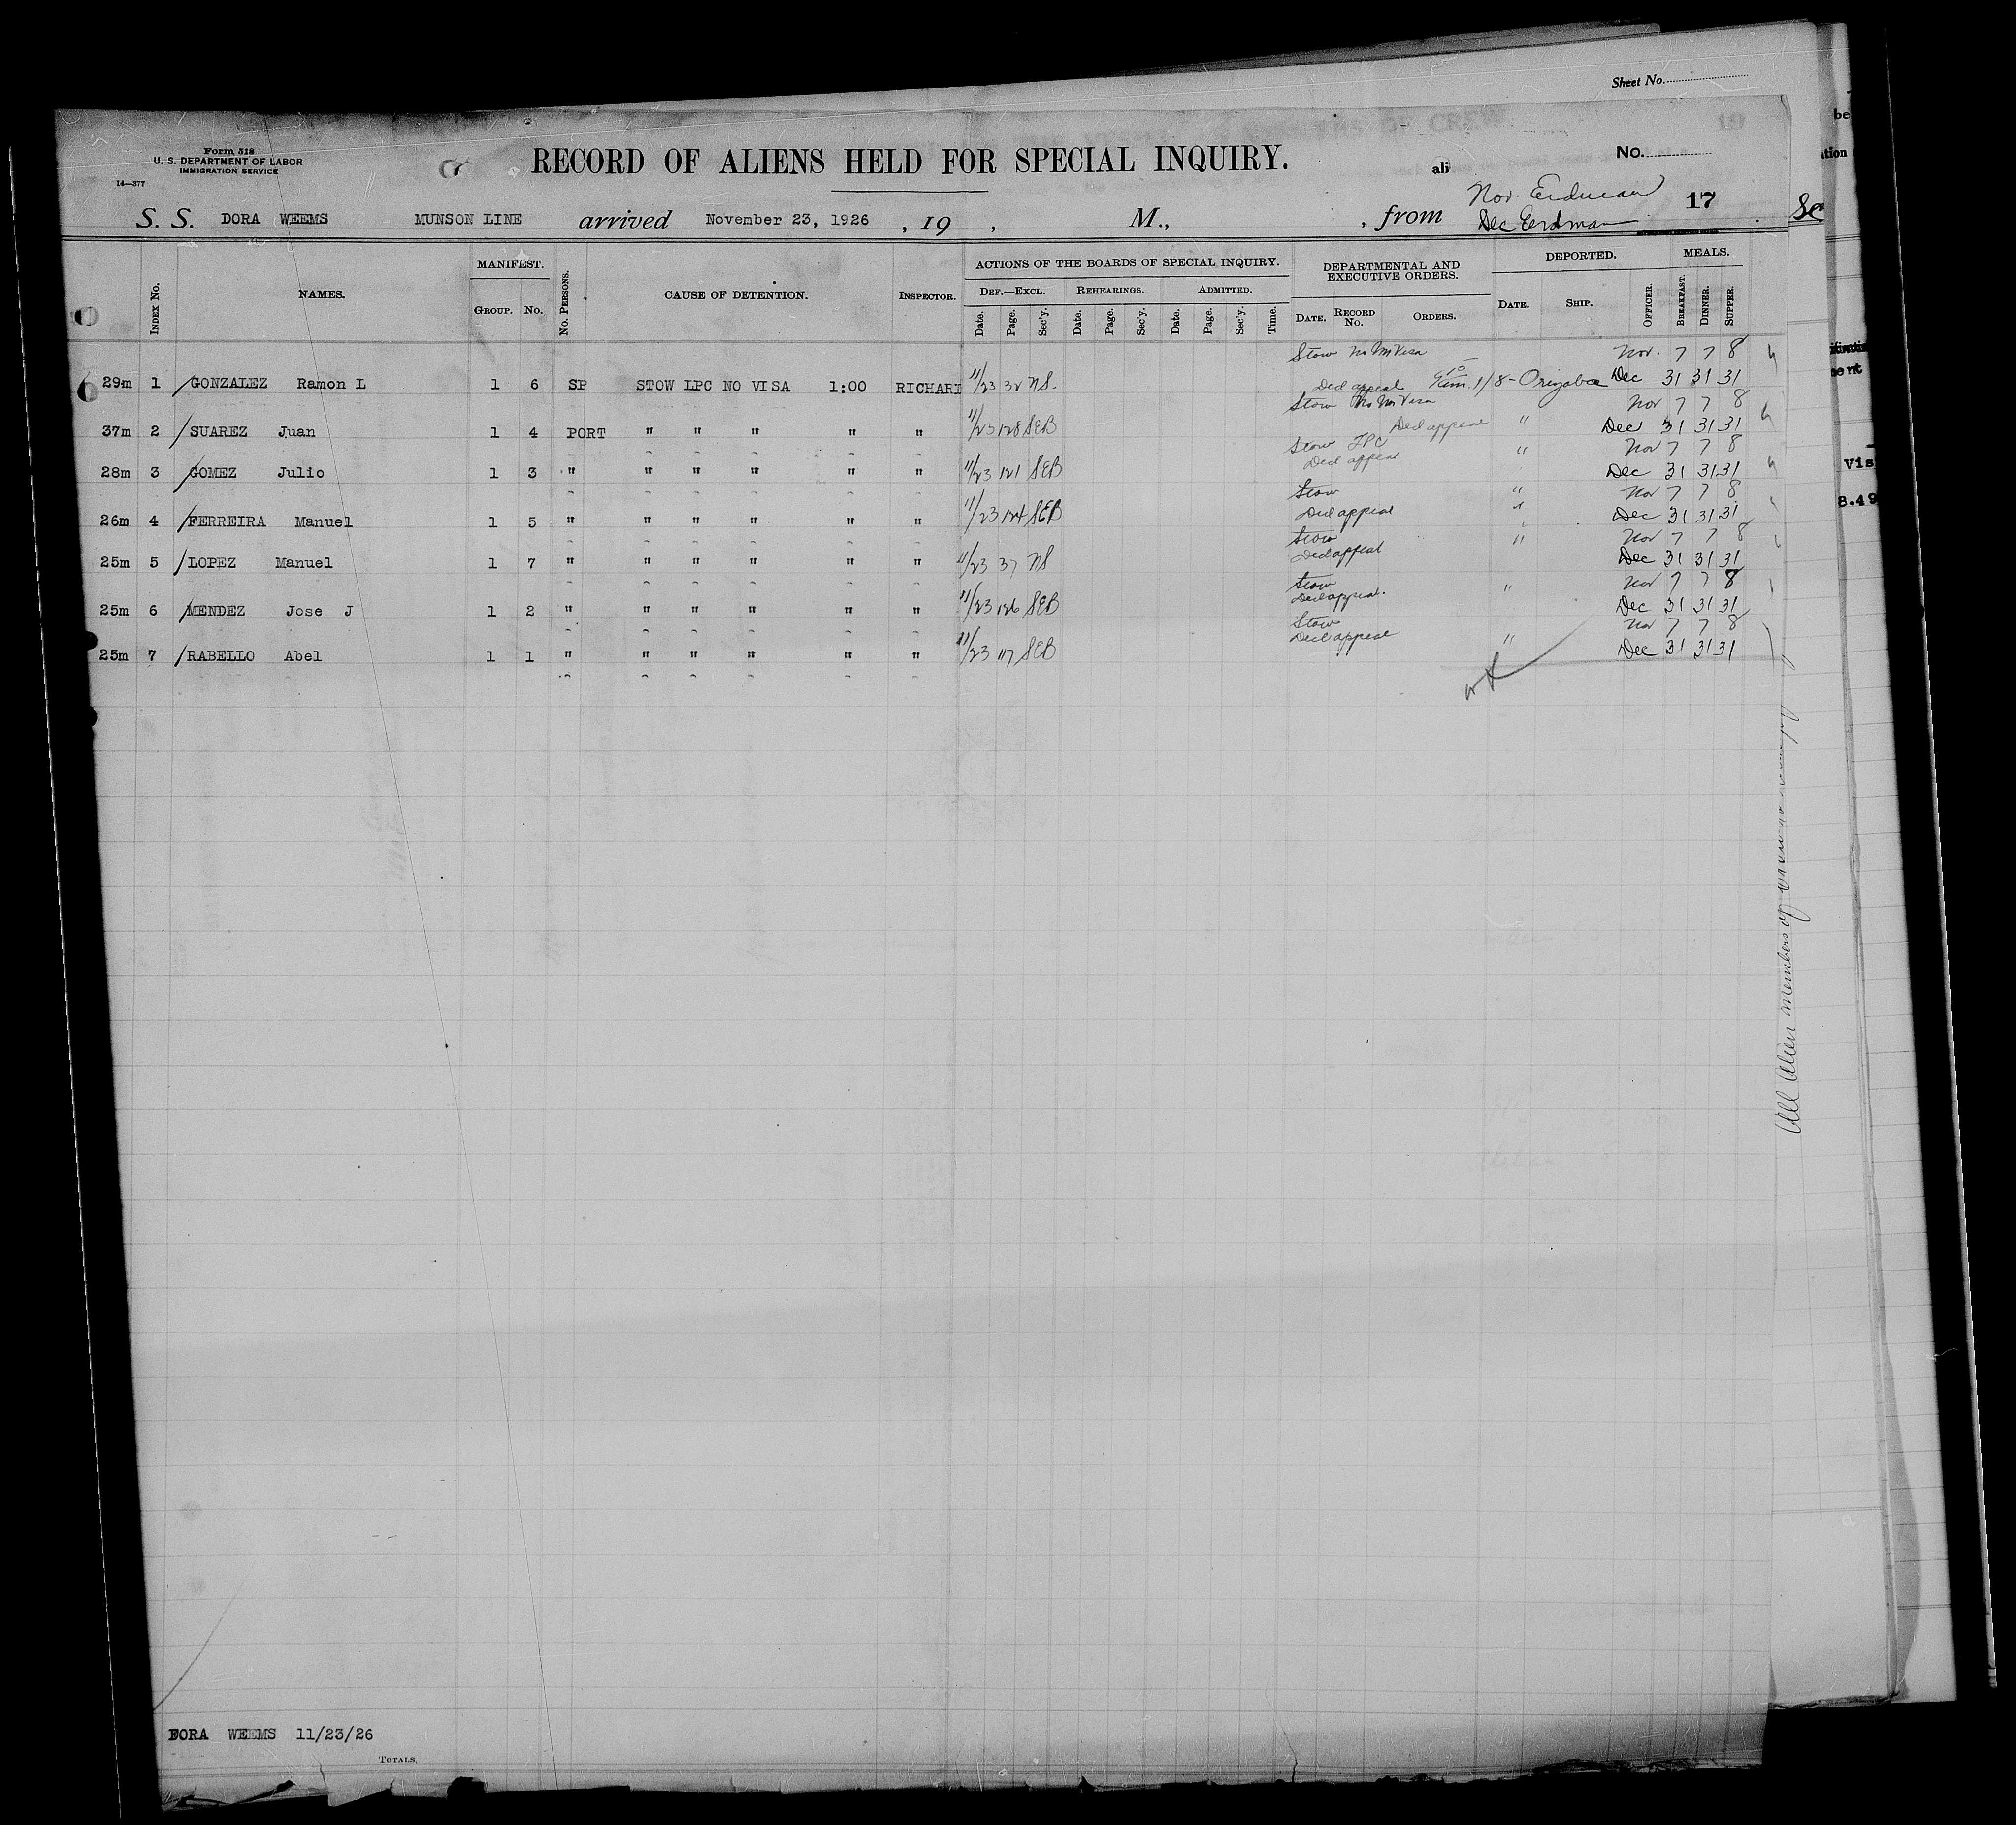 Sheet No.
Form 518
U. S. DEPARTMENT OF LABOR
IMMIGRATION SERVICE
14—377
RECORD OF ALIENS HELD FOR SPECIAL INQUIRY.
ali
No.
17
Nov. Erdman
Dec Erdman
S. S. DORA WEEMS MUNSON LINE arrived November 23, 1926 , 19 , M., , from
Index No.
NAMES.
MANIFEST.
Group. No.
No. Persons.
CAUSE OF DETENTION.
Inspector.
ACTIONS OF THE BOARDS OF SPECIAL INQUIRY.
Def.—Excl. Rehearings. Admitted.
Date. Page. Sec'y. Date. Page. Sec'y. Date. Page. Sec'y. Time.
DEPARTMENTAL AND EXECUTIVE ORDERS.
Date. Record No. Orders.
DEPORTED.
Date. Ship. Officer.
MEALS.
Breakfast. Dinner. Supper.
Stow Nov. 7 7 8
29m 1 GONZALEZ Ramon L 1 6 SP STOW LPC NO VISA 1:00 RICHARD 11/23 32 NS. Decl appeal 1/8 - Orizaba Dec 31 31 31
Stow Nov 7 7 8
37m 2 SUAREZ Juan 1 4 PORT " " " " " 11/23 128 SEB Decl appeal " Dec 31 31 31
Stow LPC Nov 7 7 8
28m 3 GOMEZ Julio 1 3 " " " " " " 11/23 121 SEB Decl appeal " Dec 31 31 31
Stow " Nov 7 7 8
26m 4 FERREIRA Manuel 1 5 " " " " " " 11/23 124 SEB Decl appeal " Dec 31 31 31
Stow " Nov 7 7 8
25m 5 LOPEZ Manuel 1 7 " " " " " " 11/23 37 NS Decl appeal Dec 31 31 31
Stow Nov 7 7 8
25m 6 MENDEZ Jose J 1 2 " " " " " " 11/23 126 SEB Decl appeal. " Dec 31 31 31
Stow Nov 7 7 8
25m 7 RABELLO Abel 1 1 " " " " " " 11/23 117 SEB Decl appeal " Dec 31 31 31
All Alien members of
Vis
8.49
DORA WEEMS 11/23/26
Totals.